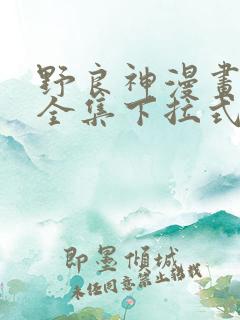 野良神漫畫
全集下拉式
即墨傾城
未经同意禁止转载